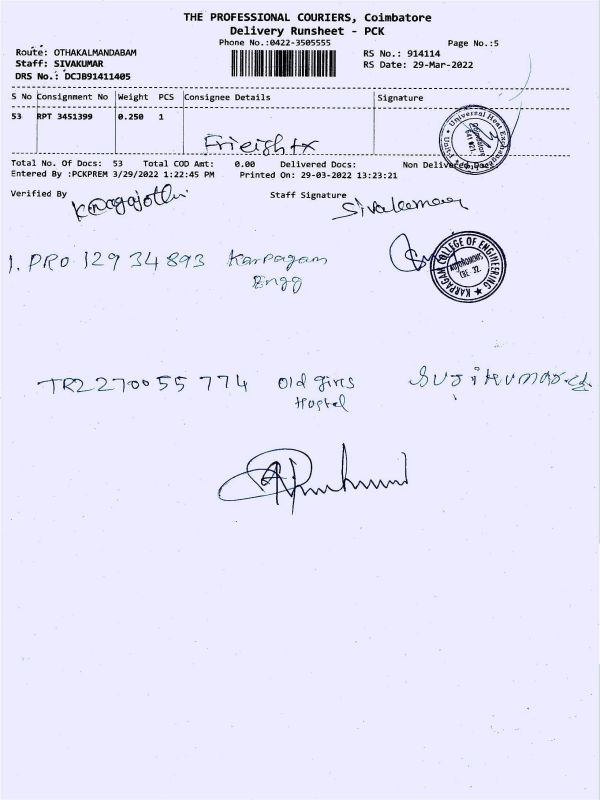 THE PROFESSIONAL COURIERS, Coimbatore
Delivery Runsheet - PCK
Phone No.:0422-3505555
Page No.:5
Route: OTHAKALMANDABAM
RS No.: 914114
Staff: SIVAKUMAR
RS Date: 29-Mar-2022
DRS No.: DCJB91411405
S No Consignment No Weight PCS Consignee Details Signature
53 RPT 3451399 0.250 1
Universal Heat
Frieightx
Total No. Of Docs: 53 Total COD Amt: 0.00 Delivered Docs: Non Delivered Docs:
Entered By :PCKPREM 3/29/2022 1:22:45 PM Printed On: 29-03-2022 13:23:21
Verified By Staff Signature
Sivakumar
1. PRO 12934893 Karpagam
Engg
KARPAGAM COLLEGE OF ENGINEERING
AUTONOMOUS
CBE - 32.
TRZ270055774 Old girls
Hostel